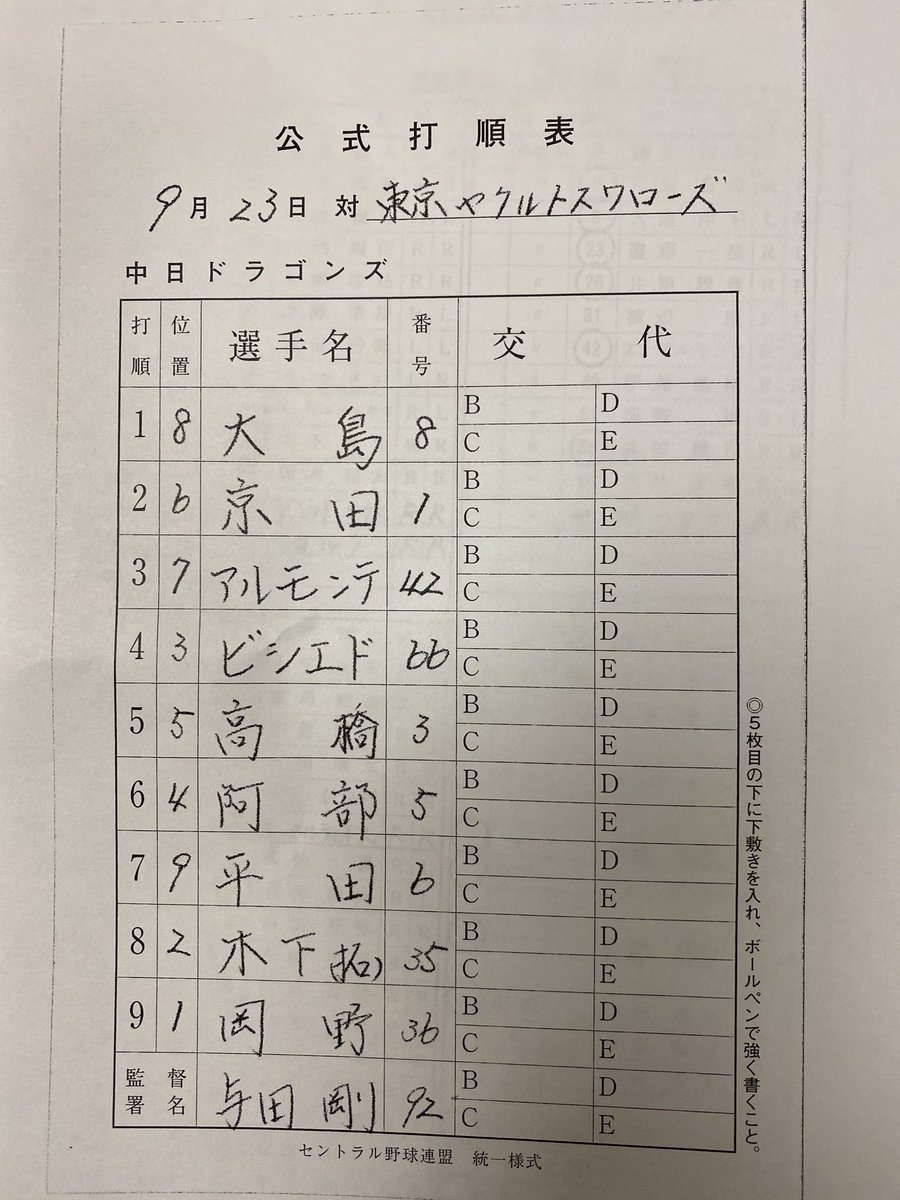 公式打順表
9月23日 対 東京ヤクルトスワローズ
中日ドラゴンズ
打順 位置 選手名 番号 交代
1 8 大島 8 B D
C E
2 6 京田 1 B D
C E
3 7 アルモンテ 42 B D
C E
4 3 ビシエド 66 B D
C E
5 5 高橋 3 B D
C E
6 4 阿部 5 B D
C E
7 9 平田 6 B D
C E
8 2 木下(拓) 35 B D
C E
9 1 岡野 36 B D
C E
監督署名 与田剛 92 B D
C E
セントラル野球連盟 統一様式
◎5枚目の下に下敷きを入れ、ボールペンで強く書くこと。